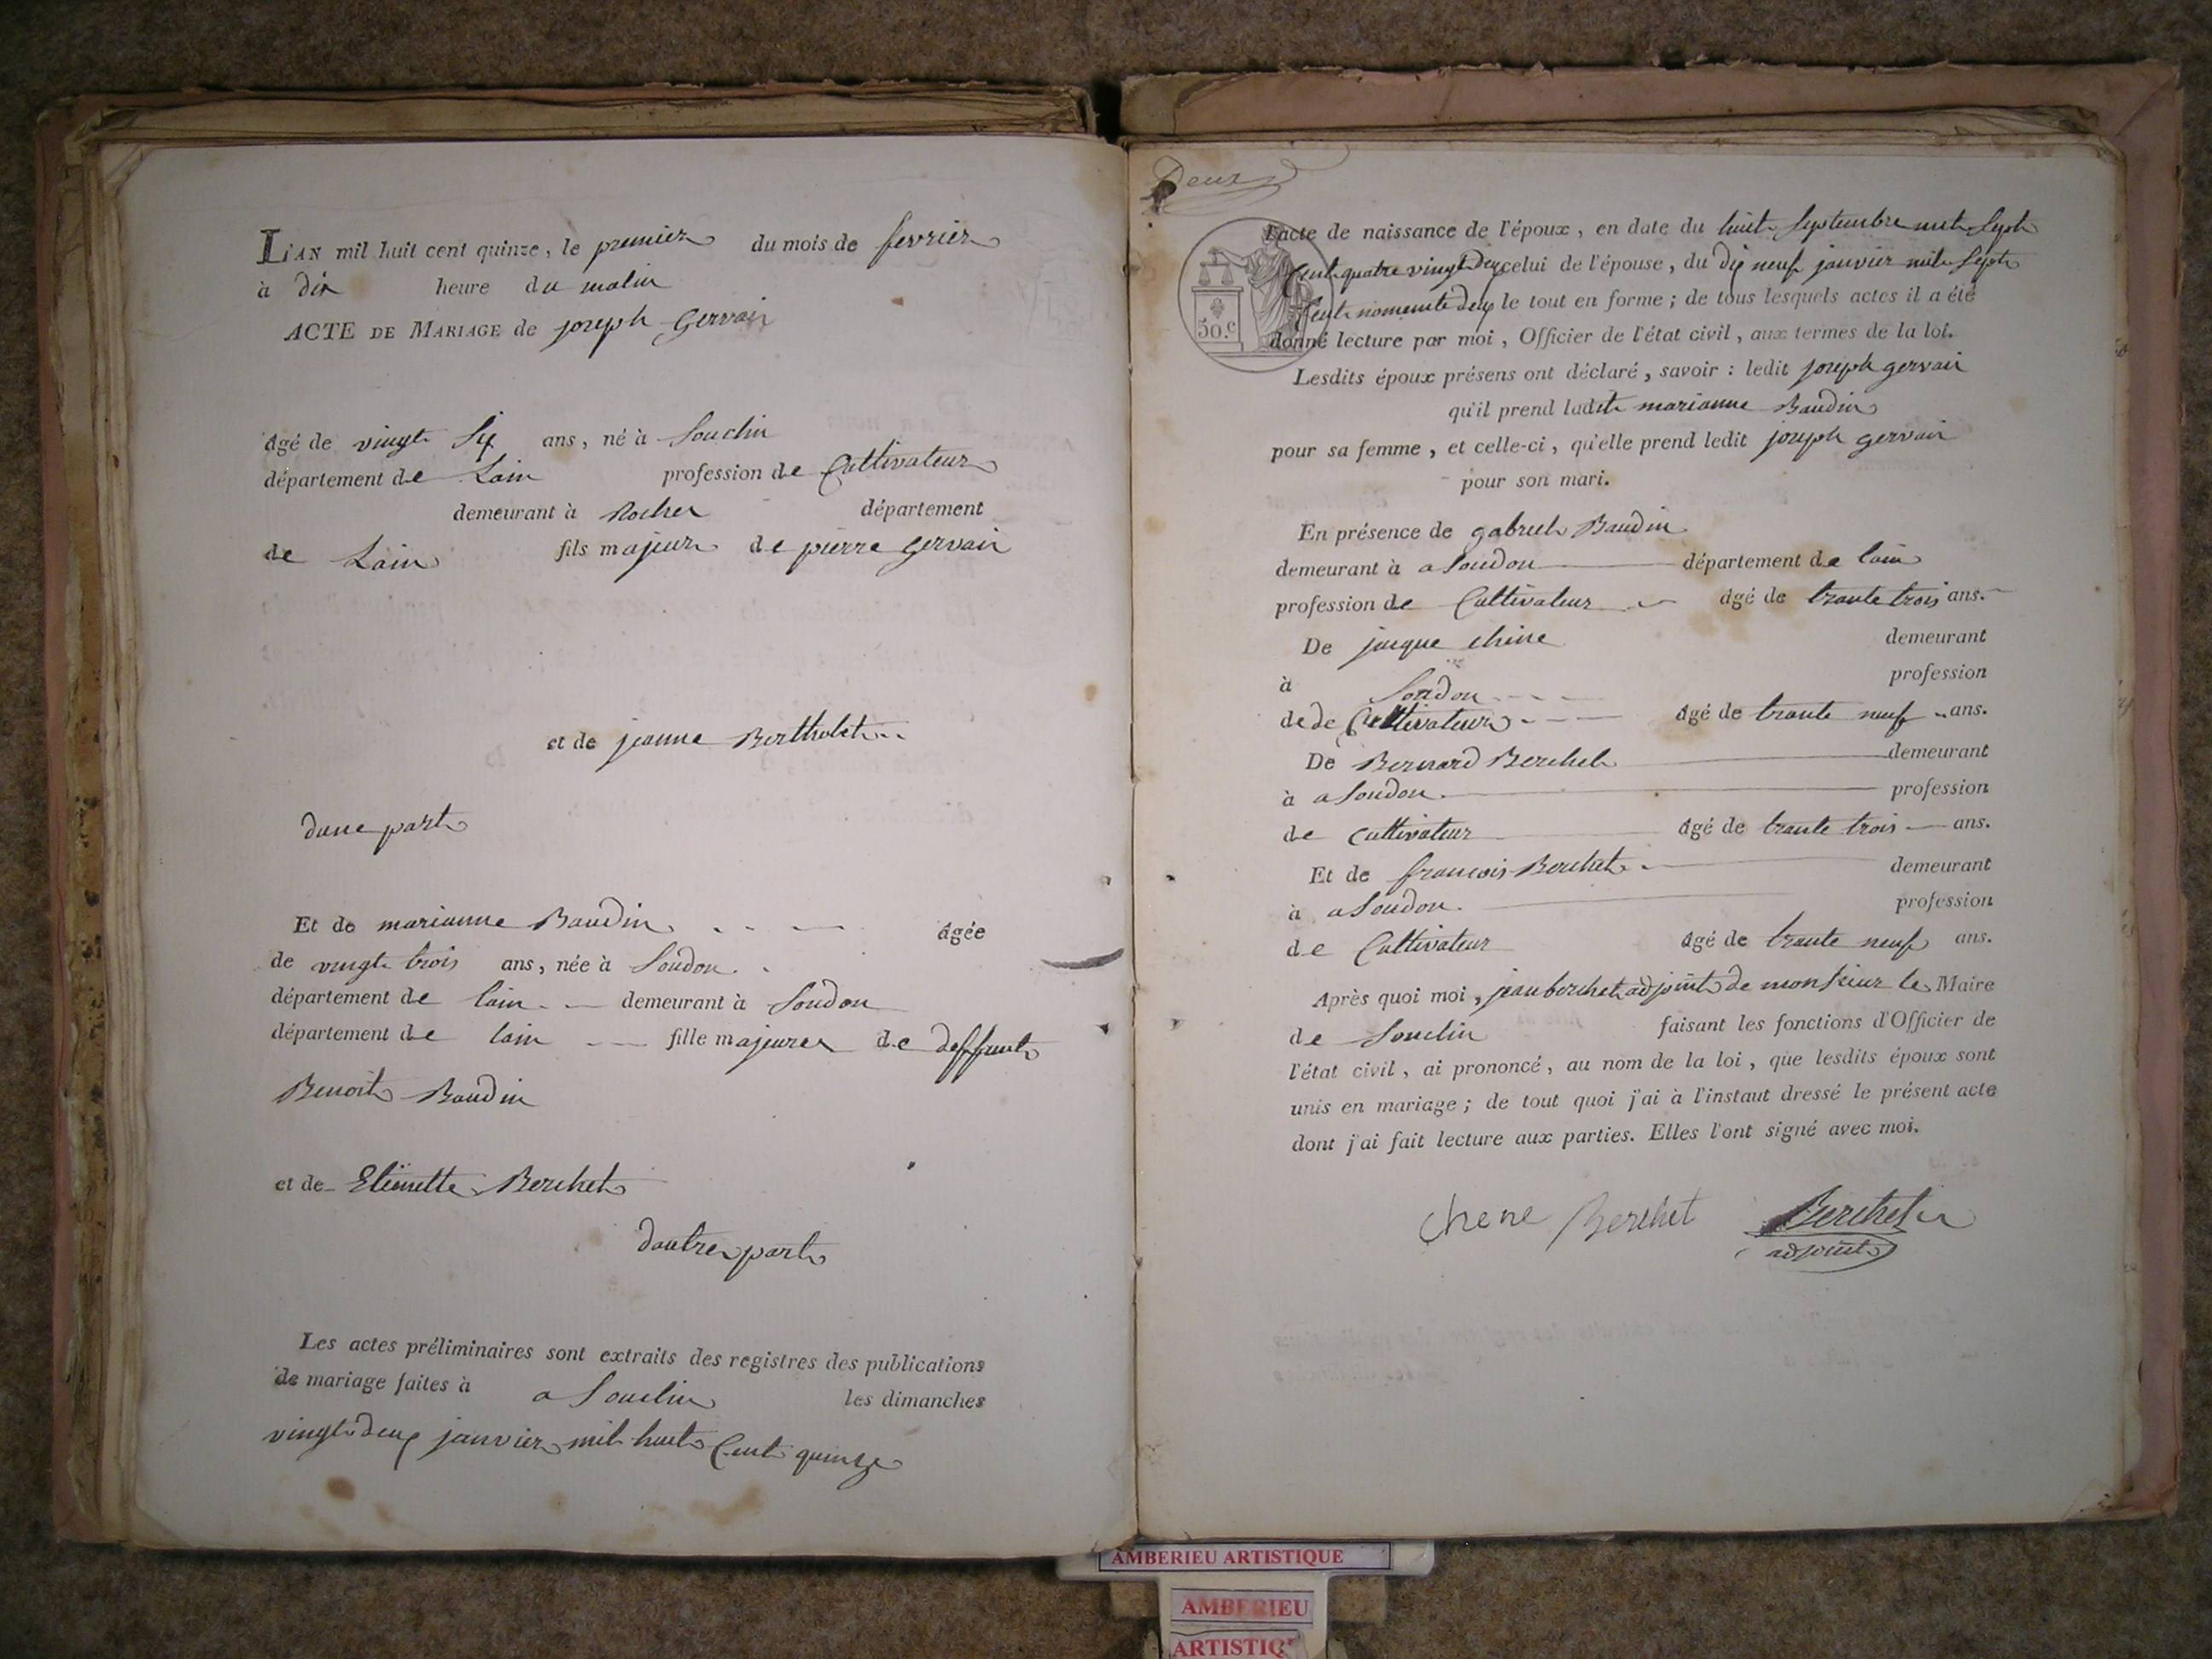 L'AN mil huit cent quinze, le premier du mois de fevrier
à dix heure du matin
ACTE DE MARIAGE de joseph Gervais
âgé de vingt Six ans, né à Souclin
département de Lain profession de Cultivateur
demeurant à Rocher département
de Lain fils majeur de pierre gervais
et de jeanne Bertholet
dune part
Et de marianne Baudin âgée
de vingt trois ans, née à Soudon
département de lain demeurant à Soudon
département de lain fille majeure de deffunt
Benoit Baudin
et de Etiennette Berchet
dautre part
Les actes préliminaires sont extraits des registres des publications
de mariage faites à a Souclin les dimanches
vingt deux janvier mil huit Cent quinze
Deux
50.c
l'acte de naissance de l'époux, en date du huit Septembre mil Sept
Cent quatre vingt celui de l'épouse, du dix neuf janvier mil Sept
Cent le tout en forme ; de tous lesquels actes il a été
donné lecture par moi, Officier de l'état civil, aux termes de la loi.
Lesdits époux présens ont déclaré, savoir : ledit joseph gervais
qu'il prend ladite marianne Baudin
pour sa femme, et celle-ci, qu'elle prend ledit joseph gervais
pour son mari.
En présence de gabriel Baudin
demeurant à a Soudon département de lain
profession de Cultivateur âgé de trante trois ans.
De jacque chene demeurant
à Soudon profession
de de Cultivateur âgé de trante neuf ans.
De Bernard Berchet demeurant
à a Soudon profession
de cultivateur âgé de trante trois ans.
Et de francois Berchet demeurant
à a Soudon profession
de Cultivateur âgé de trante neuf ans.
Après quoi moi, jean berchet adjoint de monsieur le Maire
de Souclin faisant les fonctions d'Officier de
l'état civil, ai prononcé, au nom de la loi, que lesdits époux sont
unis en mariage ; de tout quoi j'ai à l'instant dressé le présent acte
dont j'ai fait lecture aux parties. Elles l'ont signé avec moi.
chene Berchet Berchet
adjoint
AMBERIEU ARTISTIQUE
AMBERIEU
ARTISTIQ